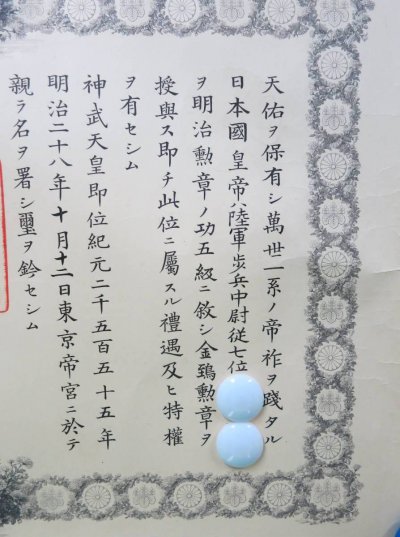 天佑ヲ保有シ萬世一系ノ帝祚ヲ踐タル
日本國皇帝ハ陸軍歩兵中尉従七位
ヲ明治勲章ノ功五級ニ敘シ金鵄勲章ヲ
授與ス即チ此位ニ屬スル禮遇及ヒ特權
ヲ有セシム
神武天皇即位紀元二千五百五十五年
明治二十八年十月十二日東京帝宮ニ於テ
親ラ名ヲ署シ璽ヲ鈐セシム